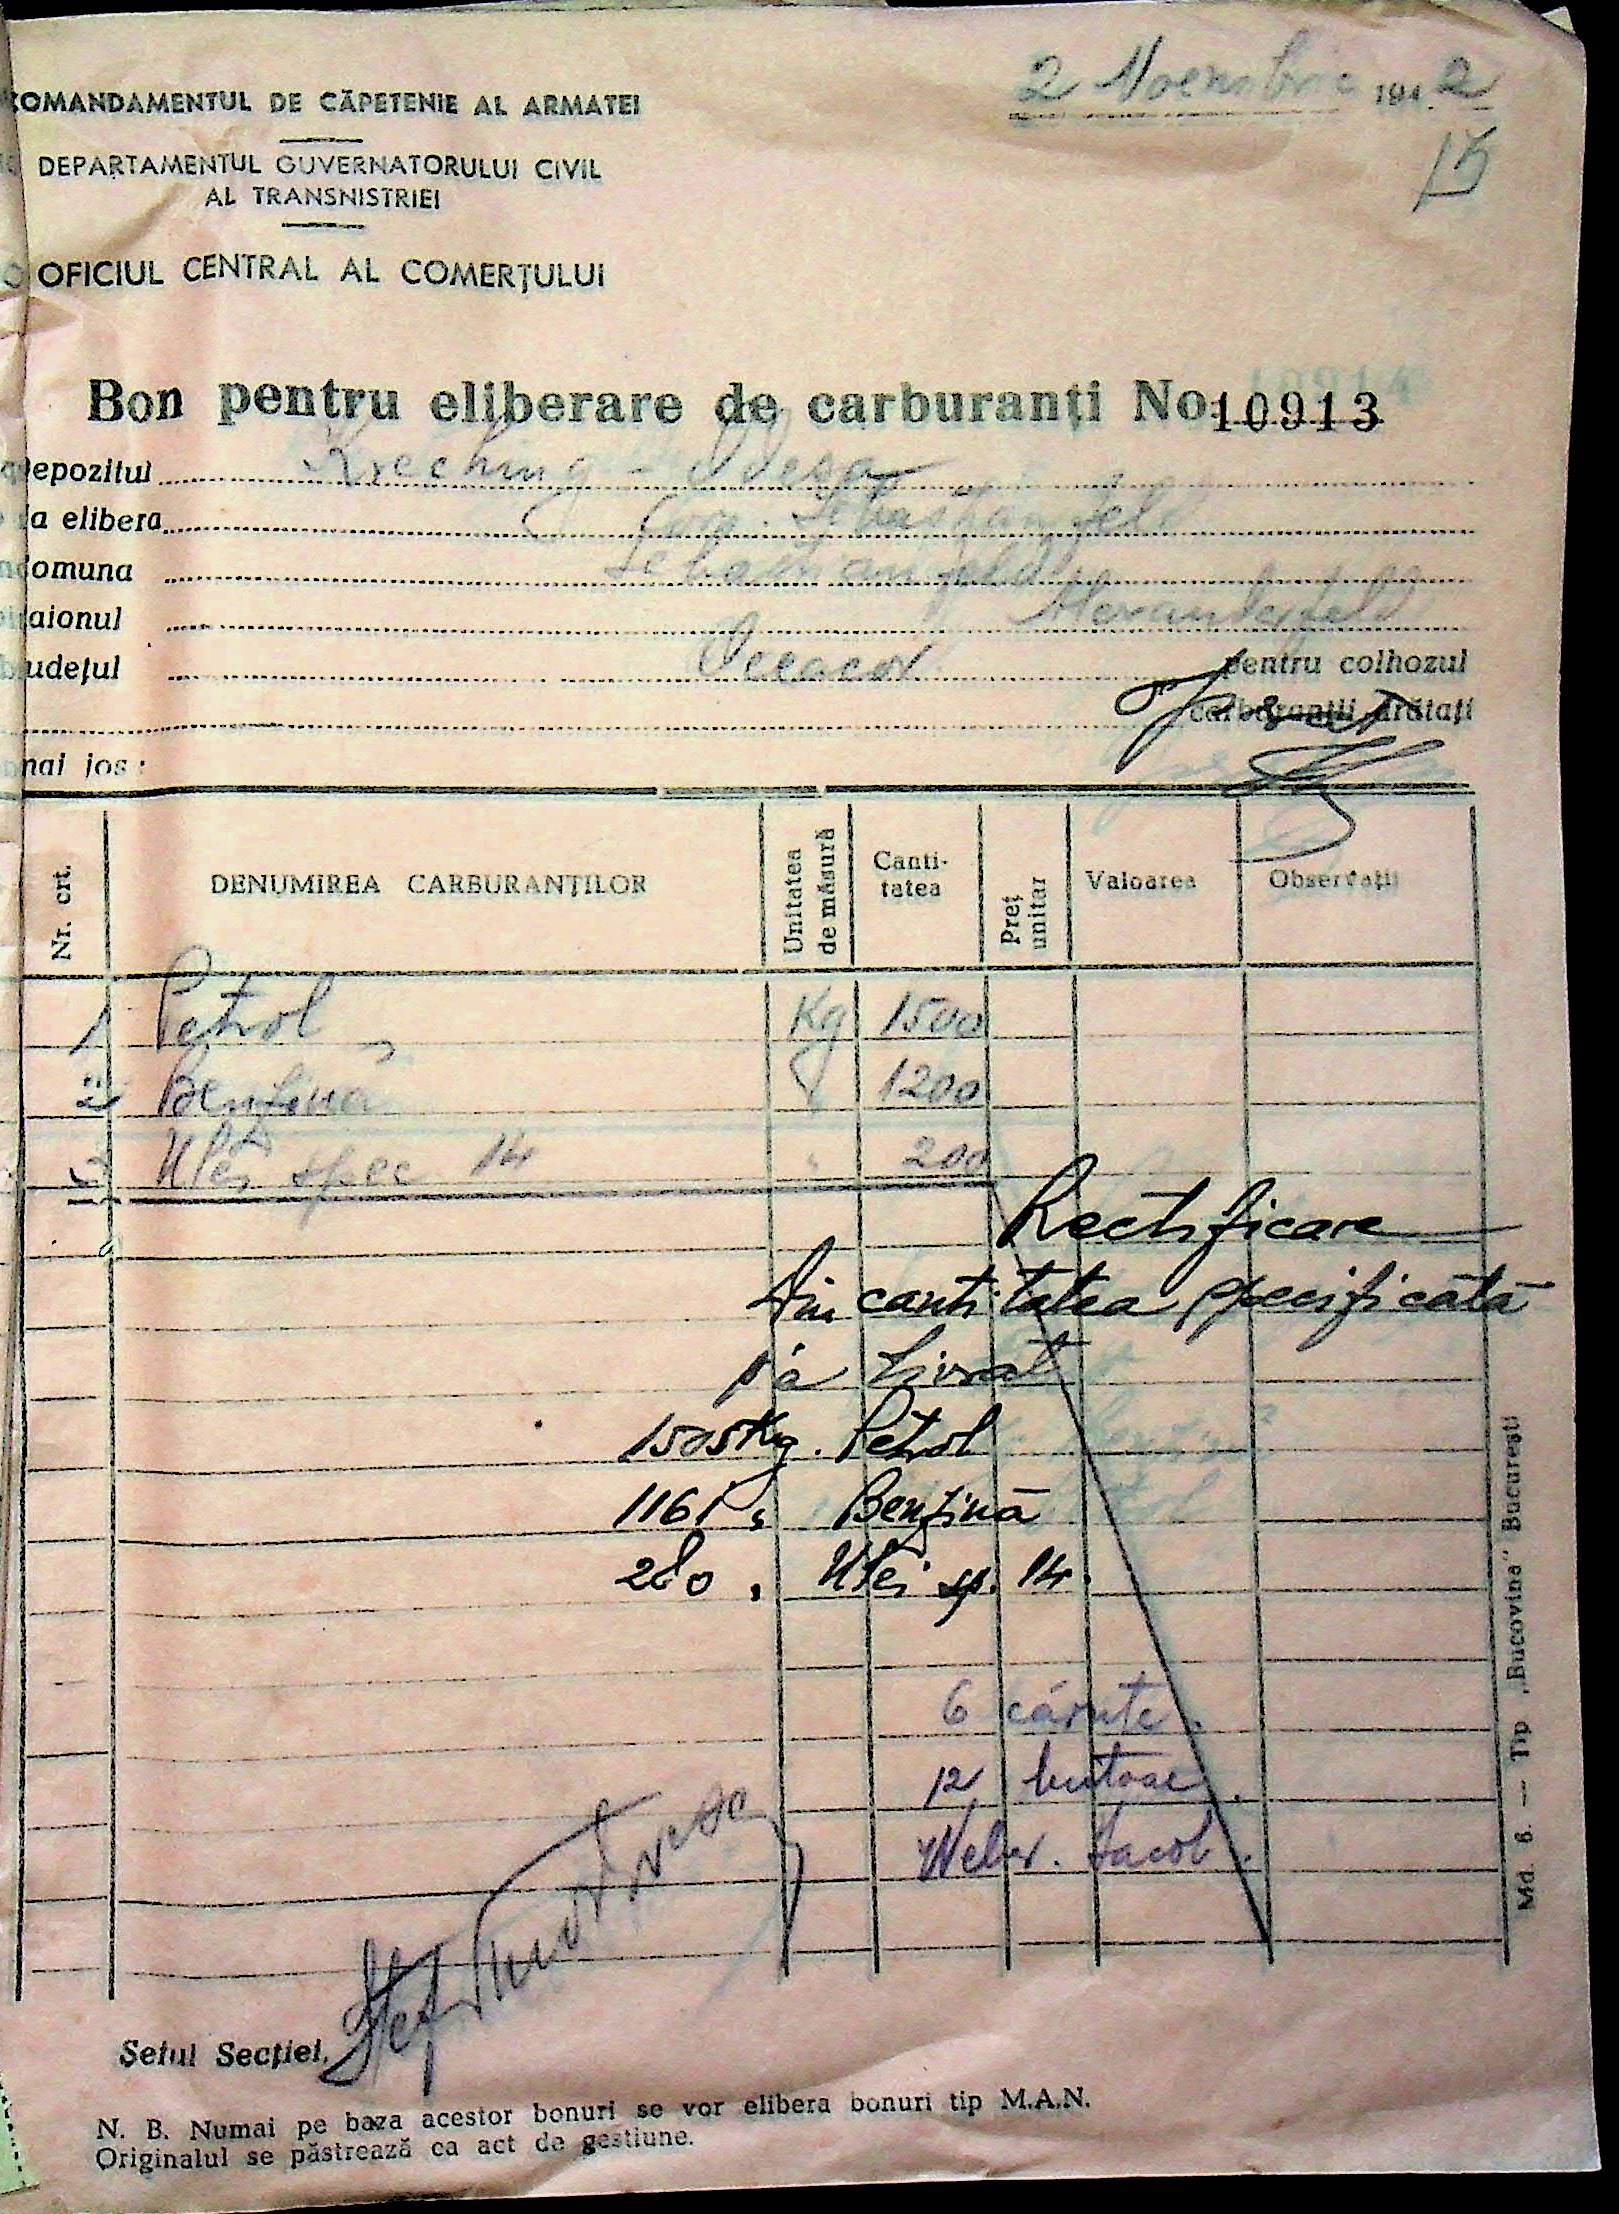 COMANDAMENTUL DE CĂPETENIE AL ARMATEI
2 Noembrie 1942
15
DEPARTAMENTUL GUVERNATORULUI CIVIL
AL TRANSNISTRIEI
OFICIUL CENTRAL AL COMERȚULUI
Bon pentru eliberare de carburanți No. 10913
depozitul Kreching - Odesa
va elibera Com. Sebastianfeld
comuna Sebastianfeld
raionul
județul Oceacov pentru colhozul
carburanții arătați
mai jos:
Nr. crt. DENUMIREA CARBURANȚILOR Unitatea de măsură Canti-tatea Preț unitar Valoarea Observații
1 Petrol Kg 1500
2 Benzină " 1200
3 Ulei spec 14 " 200
Rectificare
Din cantitatea specificată
s'a livrat
1505 Kg. Petrol
1161 " Benzină
280 " Ulei sp. 14.
6 căruțe.
12 butoae.
Weber. Iacob.
Șeful Secției,
N. B. Numai pe baza acestor bonuri se vor elibera bonuri tip M.A.N.
Originalul se păstrează ca act de gestiune.
Md. 6. — Tip „Bucovina" București